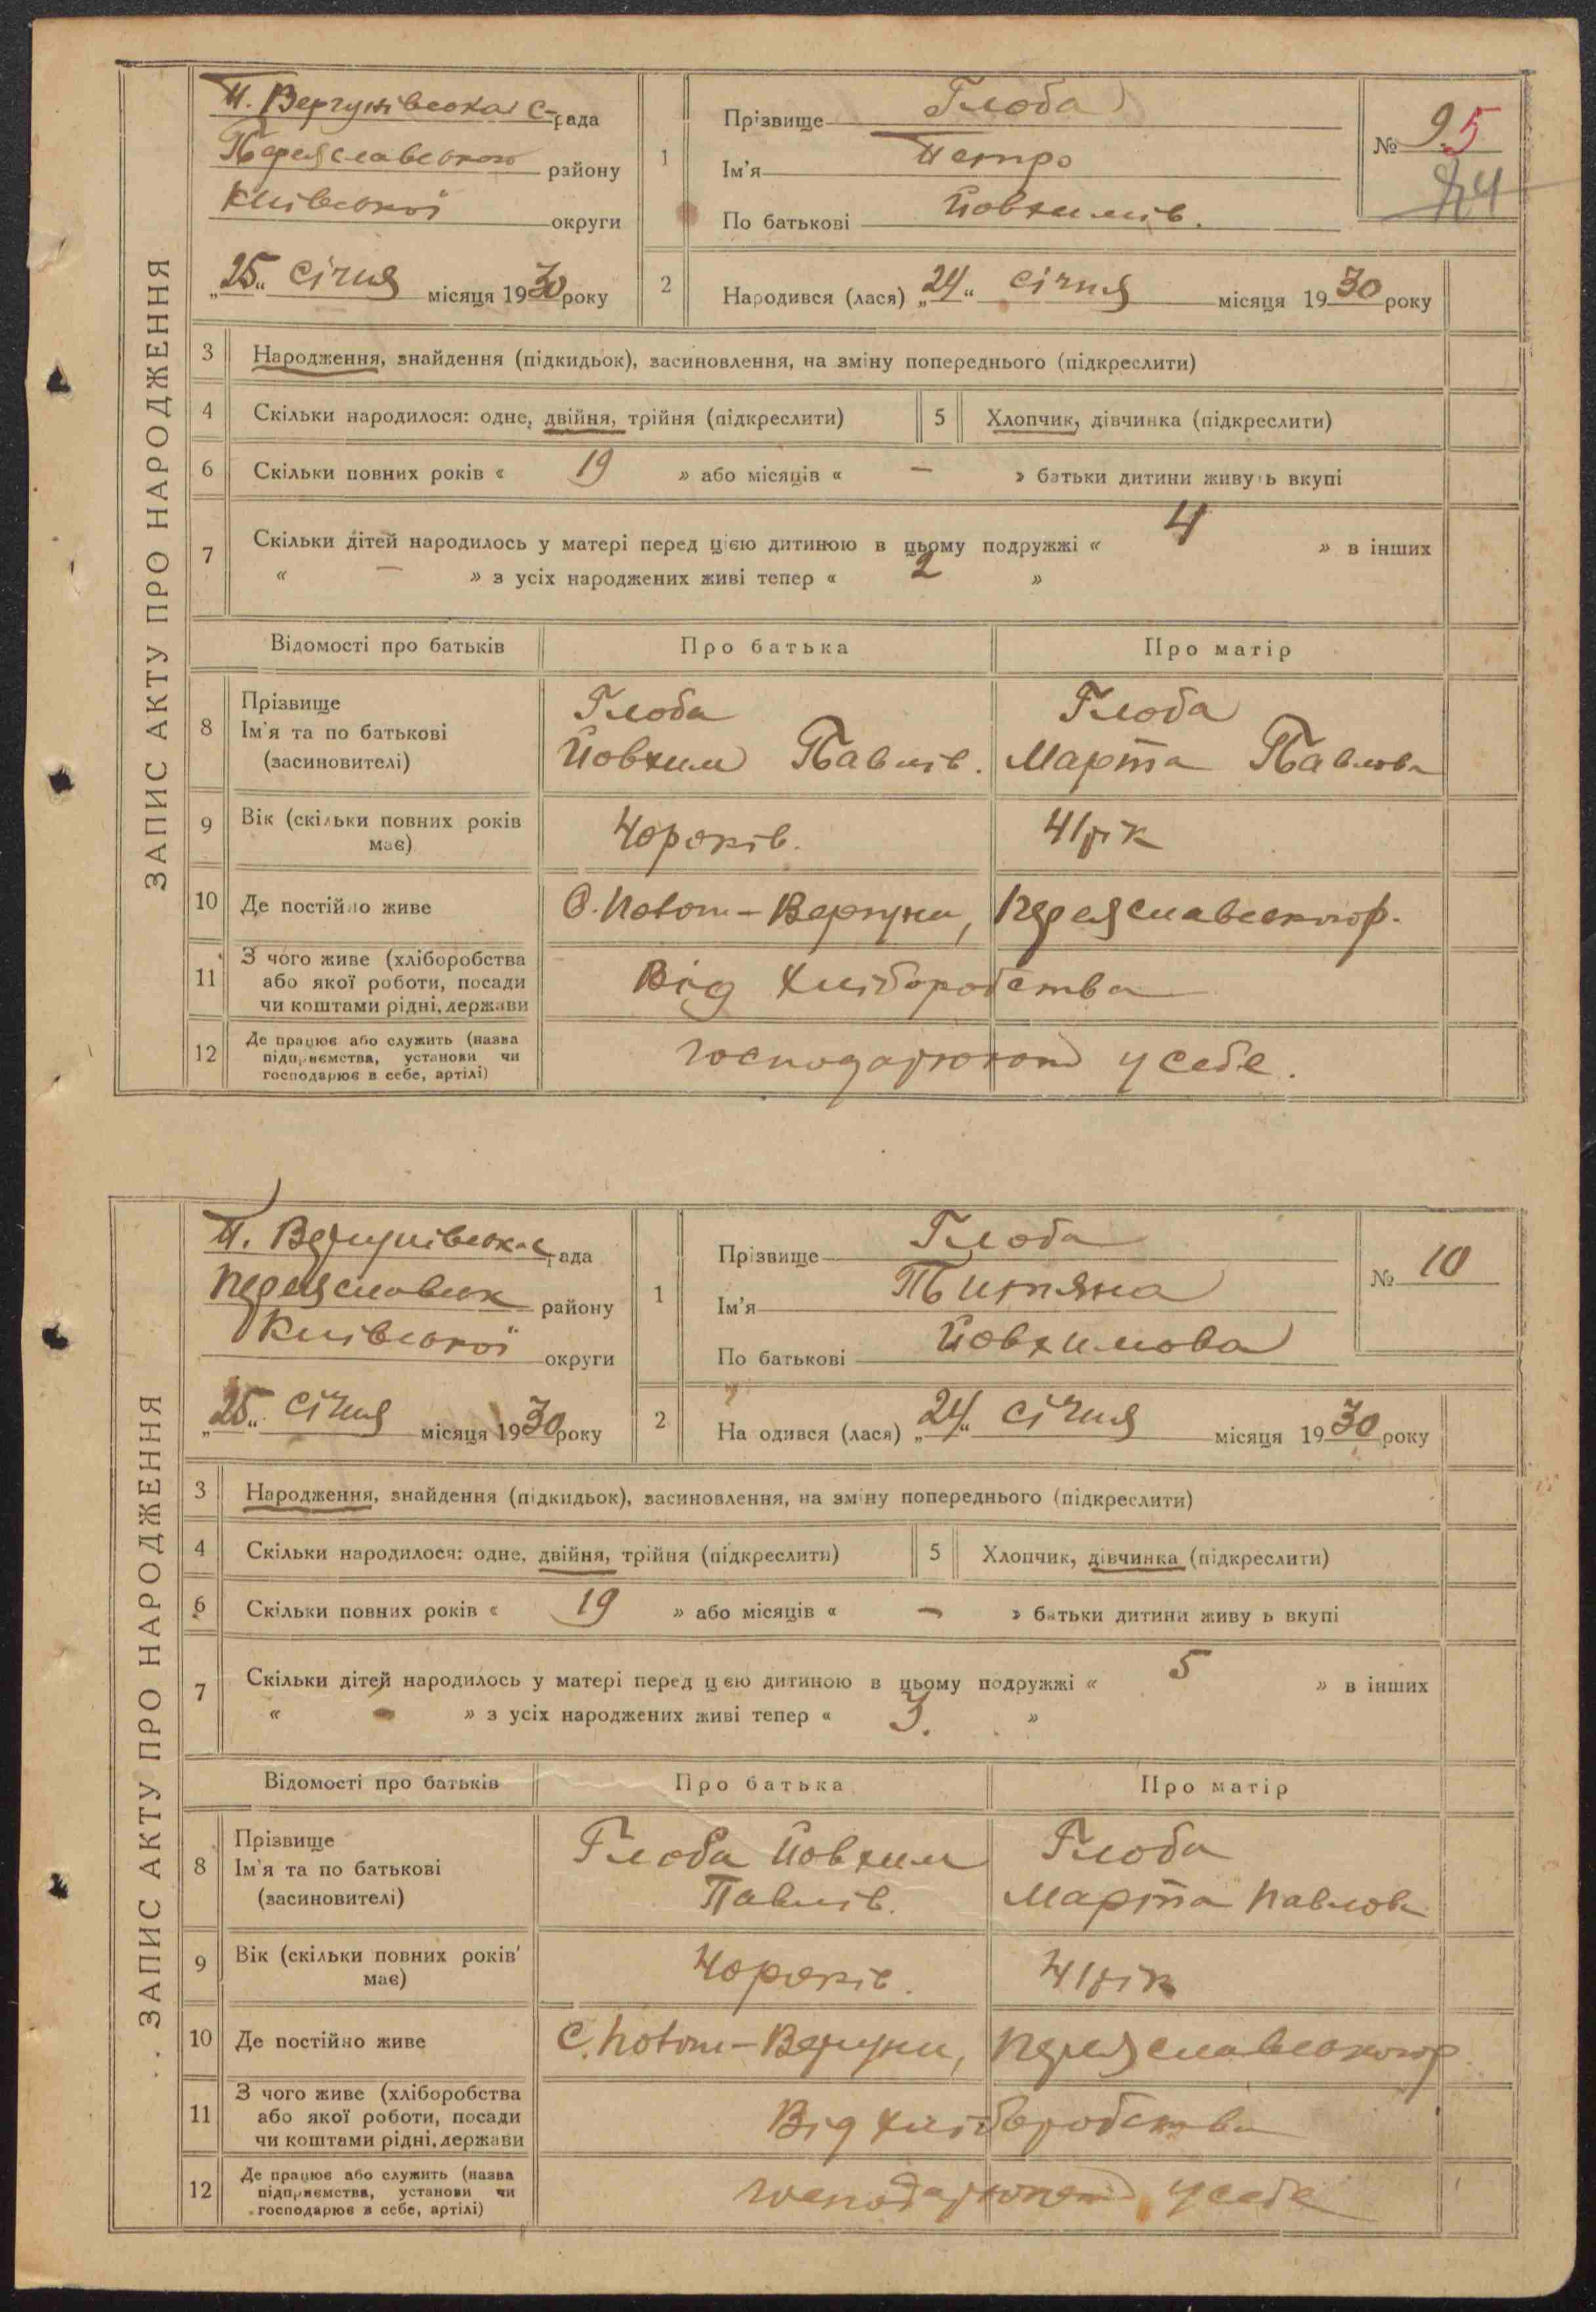 ЗАПИС АКТУ ПРО НАРОДЖЕННЯ
П. Вергунівська с-рада
Переяславського району
Київської округи
„25“ січня місяця 1930 року
1
Прізвище Глоба
Ім'я Петро
По батькові Йовхимів.
№ 9 5
2
Народився (лася) „24“ січня місяця 1930 року
3 Народження, знайдення (підкидьок), засиновлення, на зміну попереднього (підкреслити)
4 Скільки народилося: одне, двійня, трійня (підкреслити) 5 Хлопчик, дівчинка (підкреслити)
6 Скільки повних років « 19 » або місяців « — » батьки дитини живуть вкупі
7 Скільки дітей народилось у матері перед цією дитиною в цьому подружжі « 4 » в інших
« — » з усіх народжених живі тепер « 2 »
Відомості про батьків Про батька Про матір
8 Прізвище Ім'я та по батькові (засиновителі)
Глоба Глоба
Йовхим Павлів. Марта Павлова
9 Вік (скільки повних років має) 40 років. 41 рік
10 Де постійно живе С. Пологи-Вергуни, Переяславського р.
11 З чого живе (хліборобства
або якої роботи, посади
чи коштами рідні, держави
Від хліборобства
12 Де працює або служить (назва
підприємства, установи чи
господарює в себе, артілі)
господарюють у себе.
ЗАПИС АКТУ ПРО НАРОДЖЕННЯ
П. Вергунівська с рада
Переяславськ району
Київської округи
„25“ січня місяця 1930 року
1
Прізвище Глоба
Ім'я Титяна
По батькові Йовхимова
№ 10
2
На одився (лася) „24“ січня місяця 1930 року
3 Народження, знайдення (підкидьок), засиновлення, на зміну попереднього (підкреслити)
4 Скільки народилося: одне, двійня, трійня (підкреслити) 5 Хлопчик, дівчинка (підкреслити)
6 Скільки повних років « 19 » або місяців « — » батьки дитини живу ь вкупі
7 Скільки дітей народилось у матері перед цією дитиною в цьому подружжі « 5 » в інших
« — » з усіх народжених живі тепер « 3. »
Відомості про батьків Про батька Про матір
8 Прізвище Ім'я та по батькові (засиновителі)
Глоба Йовхим Глоба
Павлів. Марта Павлов
9 Вік (скільки повних років має) 40 років. 41 рік
10 Де постійно живе С. Пологи-Вергуни, Переяславського р
11 З чого живе (хліборобства
або якої роботи, посади
чи коштами рідні, держави
Від хліборобства
12 Де працює або служить (назва
підприємства, установи чи
господарює в себе, артілі)
господарюють у себе